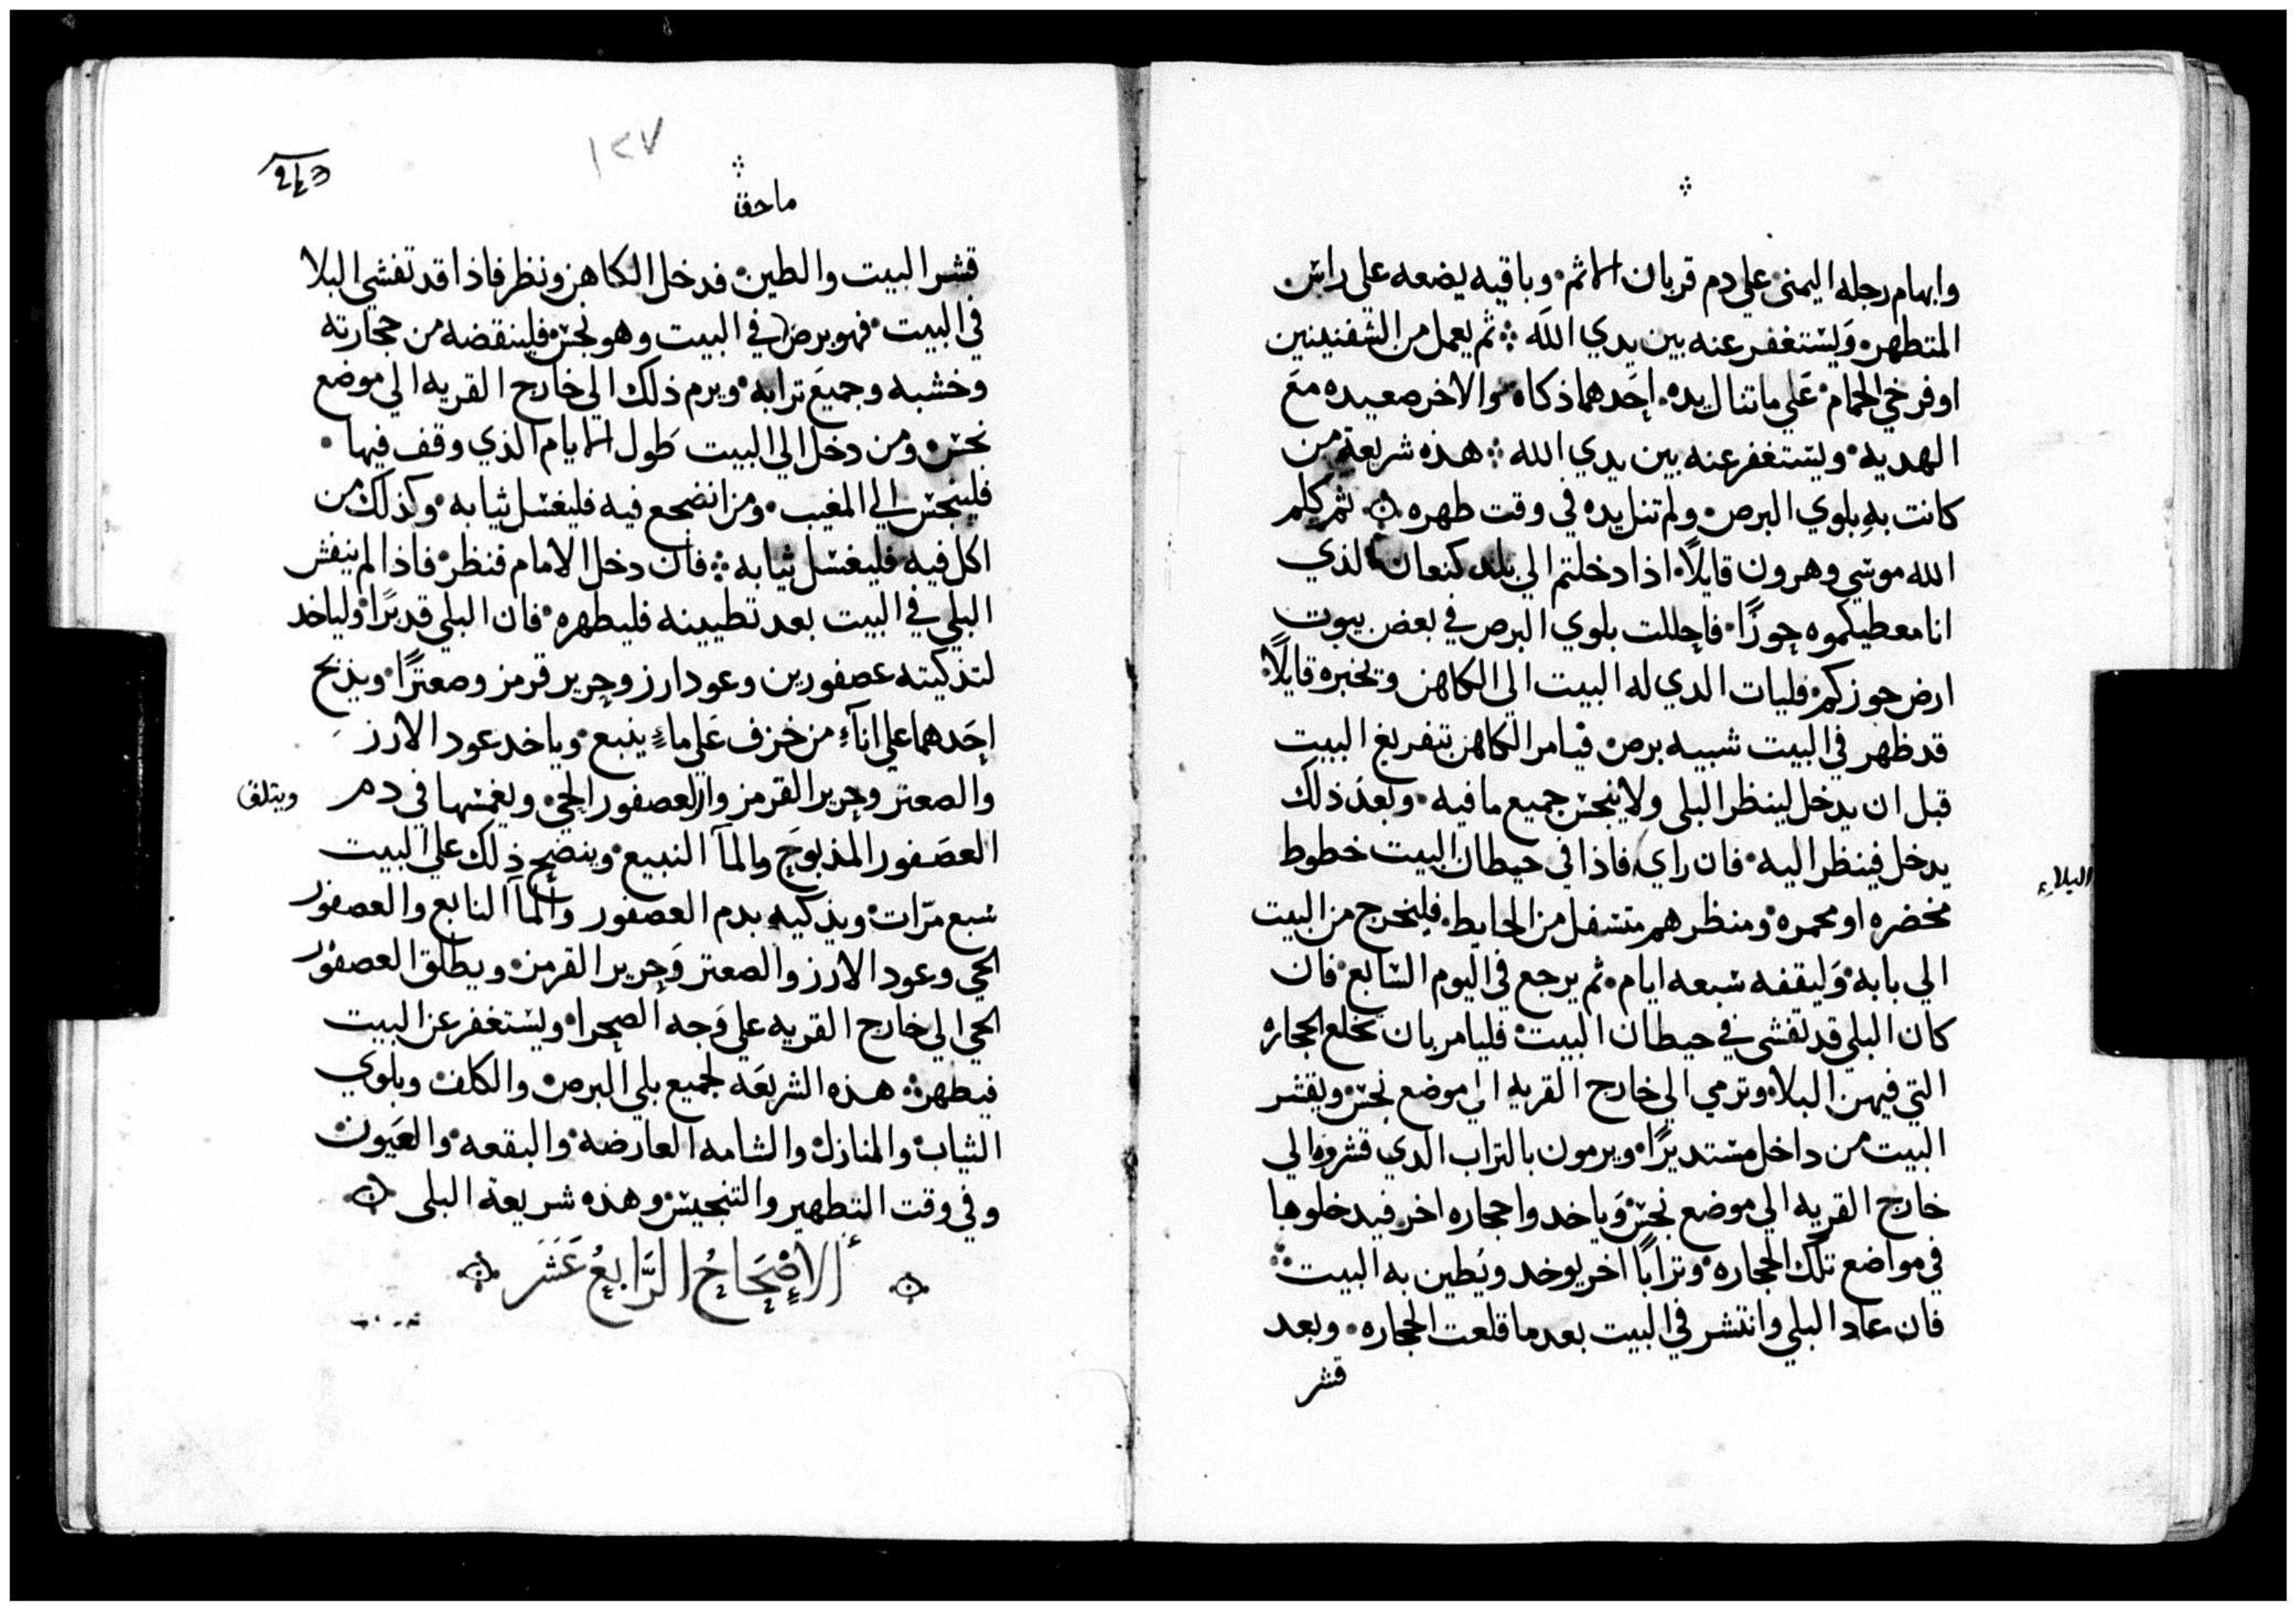 وابهام رجله اليمنى علي دم قربان الاثم. وباقيه يضعه على راس
المتطهر. وَيستغفر عنه بين يدي الله ܀ ثم يعمل من الشفنينين
او فرخي الحمام. عَلي ما تنال يده. احَدهما ذكاه. والاخر صعيده معَ
الهديه. ويستغفر عنه بين يدي الله ܀ هذه شريعة من
كانت بهِ بلوي البرص. ولم تنل يده في وقت طهره ܀ ثم كلم
الله موسي وهرون قايلاً. اذا دخلتم الي بلد كنعان الذي
انا معطيكموه حوزًا. فاحللت بلوي البرص في بعض بيوت
ارض حوزكم. فليات الدي له البيت الى الكاهن وتخبره قايلاً.
قد ظهر في البيت شبيه برص. فيامر الكاهن بتفريغ البيت
قبل ان يدخل لينظر البلى ولا ينجس جميع ما فيه. وبَعدَ ذلك
يدخل فينظر اليه. فان راي فاذا في حيطان البيت خطوط
البلاء
مخضره او محمره. ومنظرهم متسفل من الحايط. فليخرج من البيت
الي بابه. وَليقفه سبعه ايام. ثم يرجع في اليوم السابع. فان
كان البلي قد تفشى في حيطان البيت. فليامر بان تخلع الحجاره
التي فيهن البلا. وترمي الي خارج القريه الي موضع نجس. ويقشر
البيت من داخل مستديرًا. ويرمون بالتراب الدي قشروه الي
خارج القريه الي موضع نجس. وَياخدوا حجاره اخر فيدخلوها
في مواضع تلك الحجاره. وترابًا اخر يوخد ويَطين به البيت ܀
فان عاد البلي وانتشر في البيت بعد ما قلعت الحجاره. وبعد
قشر
١٢٧
قشر البيت والطين. فدخل الكاهن ونظر فاذا قد تفشي البلا
في البيت. فهو برص في البيت وهو نجس. فلينقضه من حجارته
وخشبه وجميعَ ترابه. ويرم ذلك الي خارج القريه الي موضع
نجس. ومن دخل الي البيت طَول الايام الذي وقف فيها.
فلينجس الي المغيب. ومن انضجع فيه فليغسل ثيابه. وكذلك من
اكل فيه فليغسل ثيابه ܀ فان دخل الامام فنظر. فاذا لم ينفش
البلي في البيت بعد تطيينه فليطهره. فان البلي قد برًا. ولياخد
لتذكيته عصفورين وعود ارز وحرير قرمز وصعترًا. ويذبح
احَدهما علي اناءٍ من خزف عَلي ماءٍ ينبع. وياخد عود الارز
والصعتر وحرير القرمز والعصفور الحي. ويغمسها في دم
العصَفور المذبوحَ والمآ النبيع. وينضح ذلك علي البيت
سبع مرّات. ويذكيه بدم العصفور والمآ النابع والعصفور
الحي وعود الارز والصعتر وَحرير القرمز. ويطلق العصفور
الحي الي خارج القريه علي وَجه الصحرا. ويستغفر عن البيت
فيطهر ܀ هذه الشريعَه لجميع بلي البرص. والكلف. وبلوي
الثياب. والمنازل. والشامه العارضه. والبقعه. والعَيون.
وفي وقت التطهير والتنجيس. وهذه شريعة البلى ܀
الاِصْحَاحُ الرَّابِعُ عَشَرَ